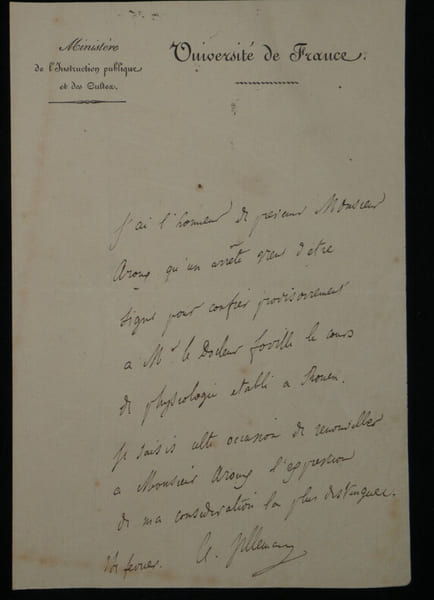 Ministère
de l'Instruction publique
et des Cultes.
Université de France.
J'ai l'honneur de prévenir Monsieur
Aroux qu'un arrêté vient d'etre
signé pour confier provisoirement
a Mr. le Docteur foville le cours
de physiologie etabli a Rouen.
Je saisis cette occasion de renouveller
a Monsieur Aroux l'expression
de ma consideration la plus distinguée.
fevrier. Villemain